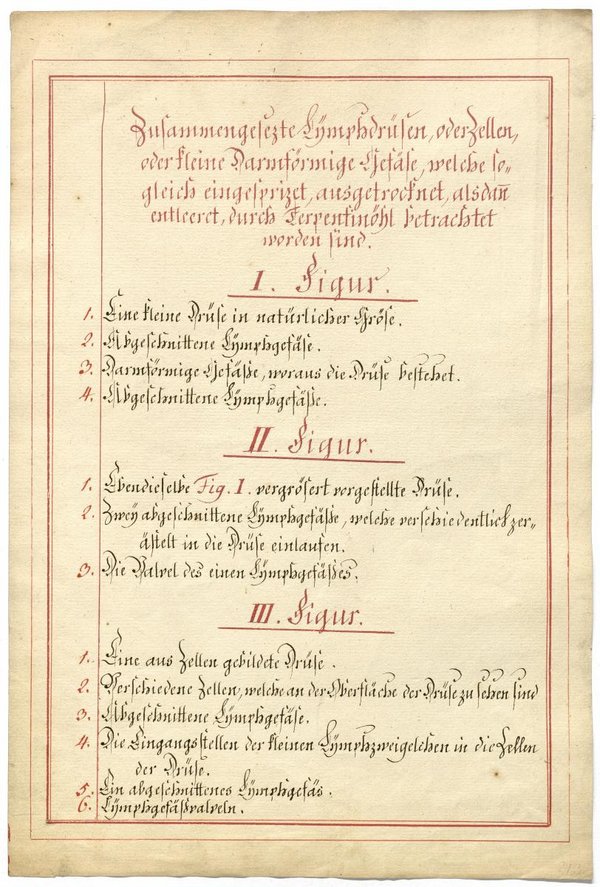 Zusammengesezte Lÿmphdrüsen, oder Zellen,
oder kleine Darmförmige Gefäse, welche so=
gleich eingesprizet, ausgetrocknet, alsdan̄
entleeret, durch Terpentinöhl betrachtet
worden sind.
I. Figur.
1. Eine kleine Drüse in natürlicher Gröse.
2. Abgeschnittene Lÿmphgefäse.
3. Darmförmige Gefäße, woraus die Drüse bestehet.
4. Abgeschnittene Lÿmphgefäße.
II. Figur.
1. Ebendieselbe Fig. I. vergrösert vorgestellte Drüse.
2. Zweÿ abgeschnittene Lÿmphgefäße, welche verschiedentlich zer=
ästelt in die Drüse einlaufen.
3. Die Valvel des einen Lÿmphgefäßes.
III. Figur.
1. Eine aus Zellen gebildete Drüse.
2. Verschiedene Zellen, welche an der Oberfläche der Drüse zu sehen sind
3. Abgeschnittene Lÿmphgefäse.
4. Die Eingangsstellen der kleinen Lÿmphzweigelchen in die Zellen
der Drüse.
5. Ein abgeschnittenes Lÿmphgefäs.
6. Lÿmphgefäßvalveln.